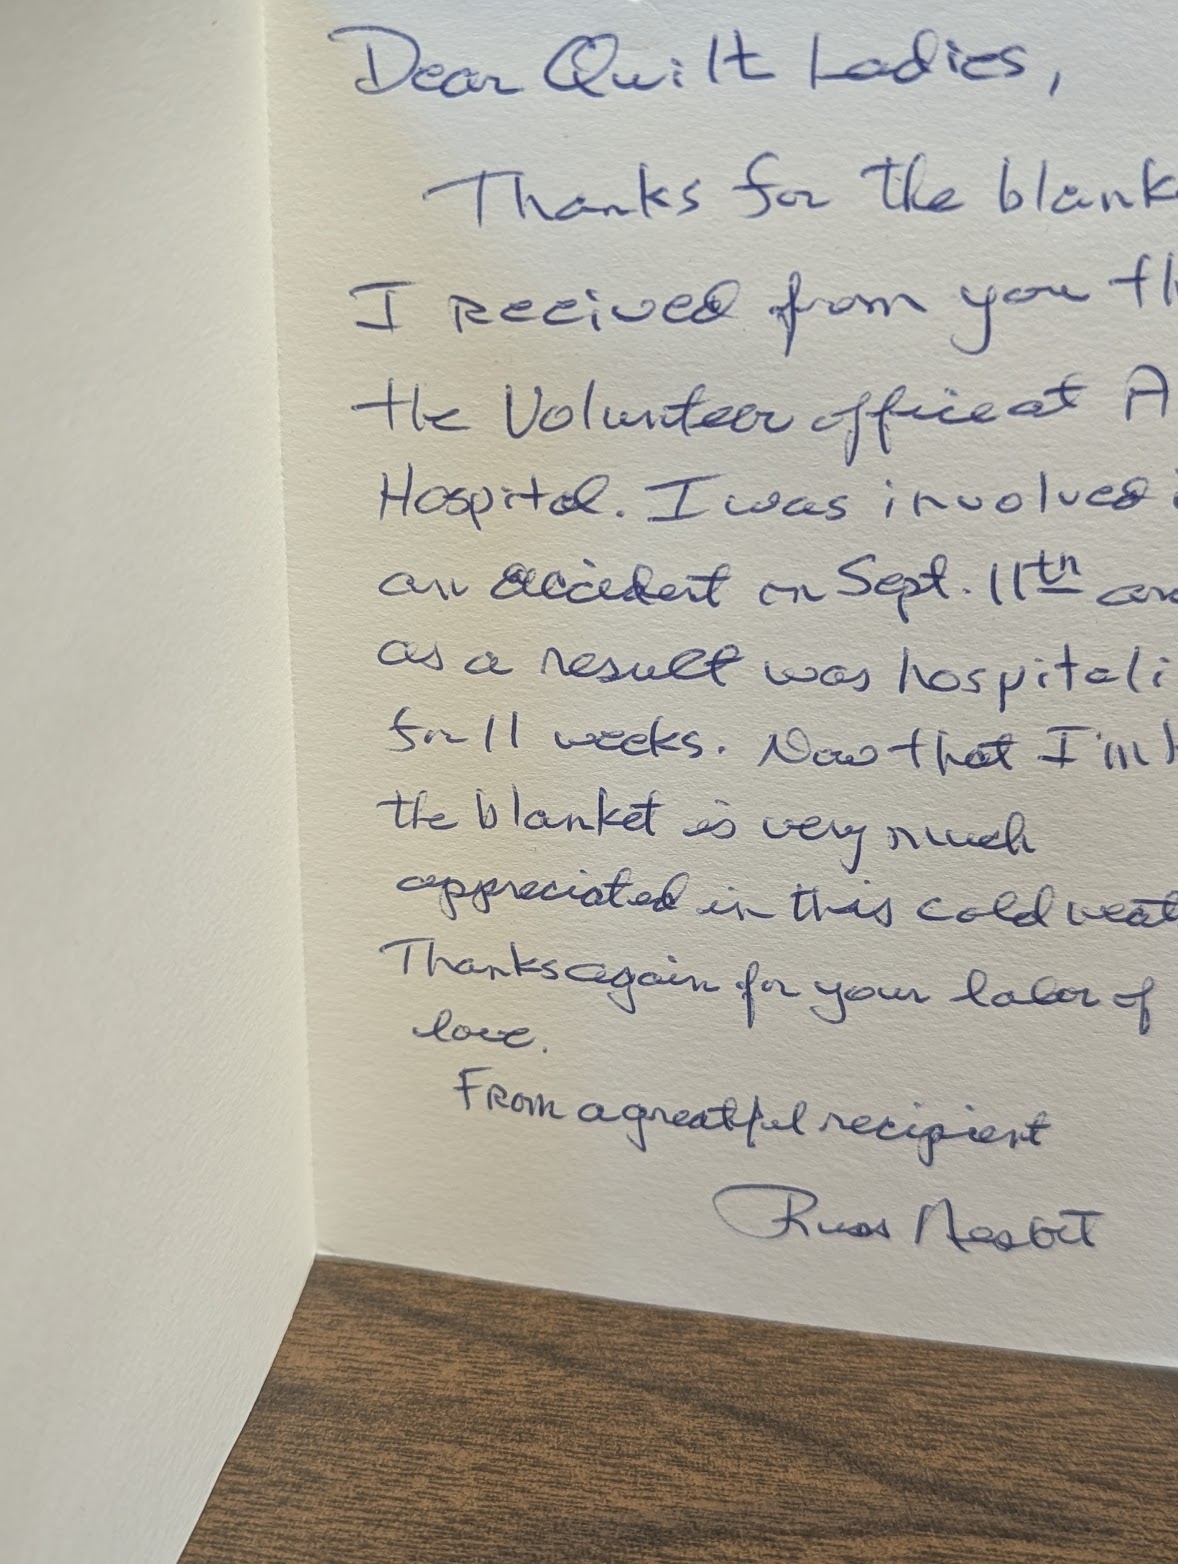 Dear Quilt Ladies,
Thanks for the blank
I recived from you th
the Volunteer office at A
Hospital. I was involved
an accident on Sept. 11th an
as a result was hospitali
for 11 weeks. Now that I'm
the blanket is very much
appreciated in this cold weat
Thanks again for your labor of
love.
From a greatful recipient
Russ Nesbit